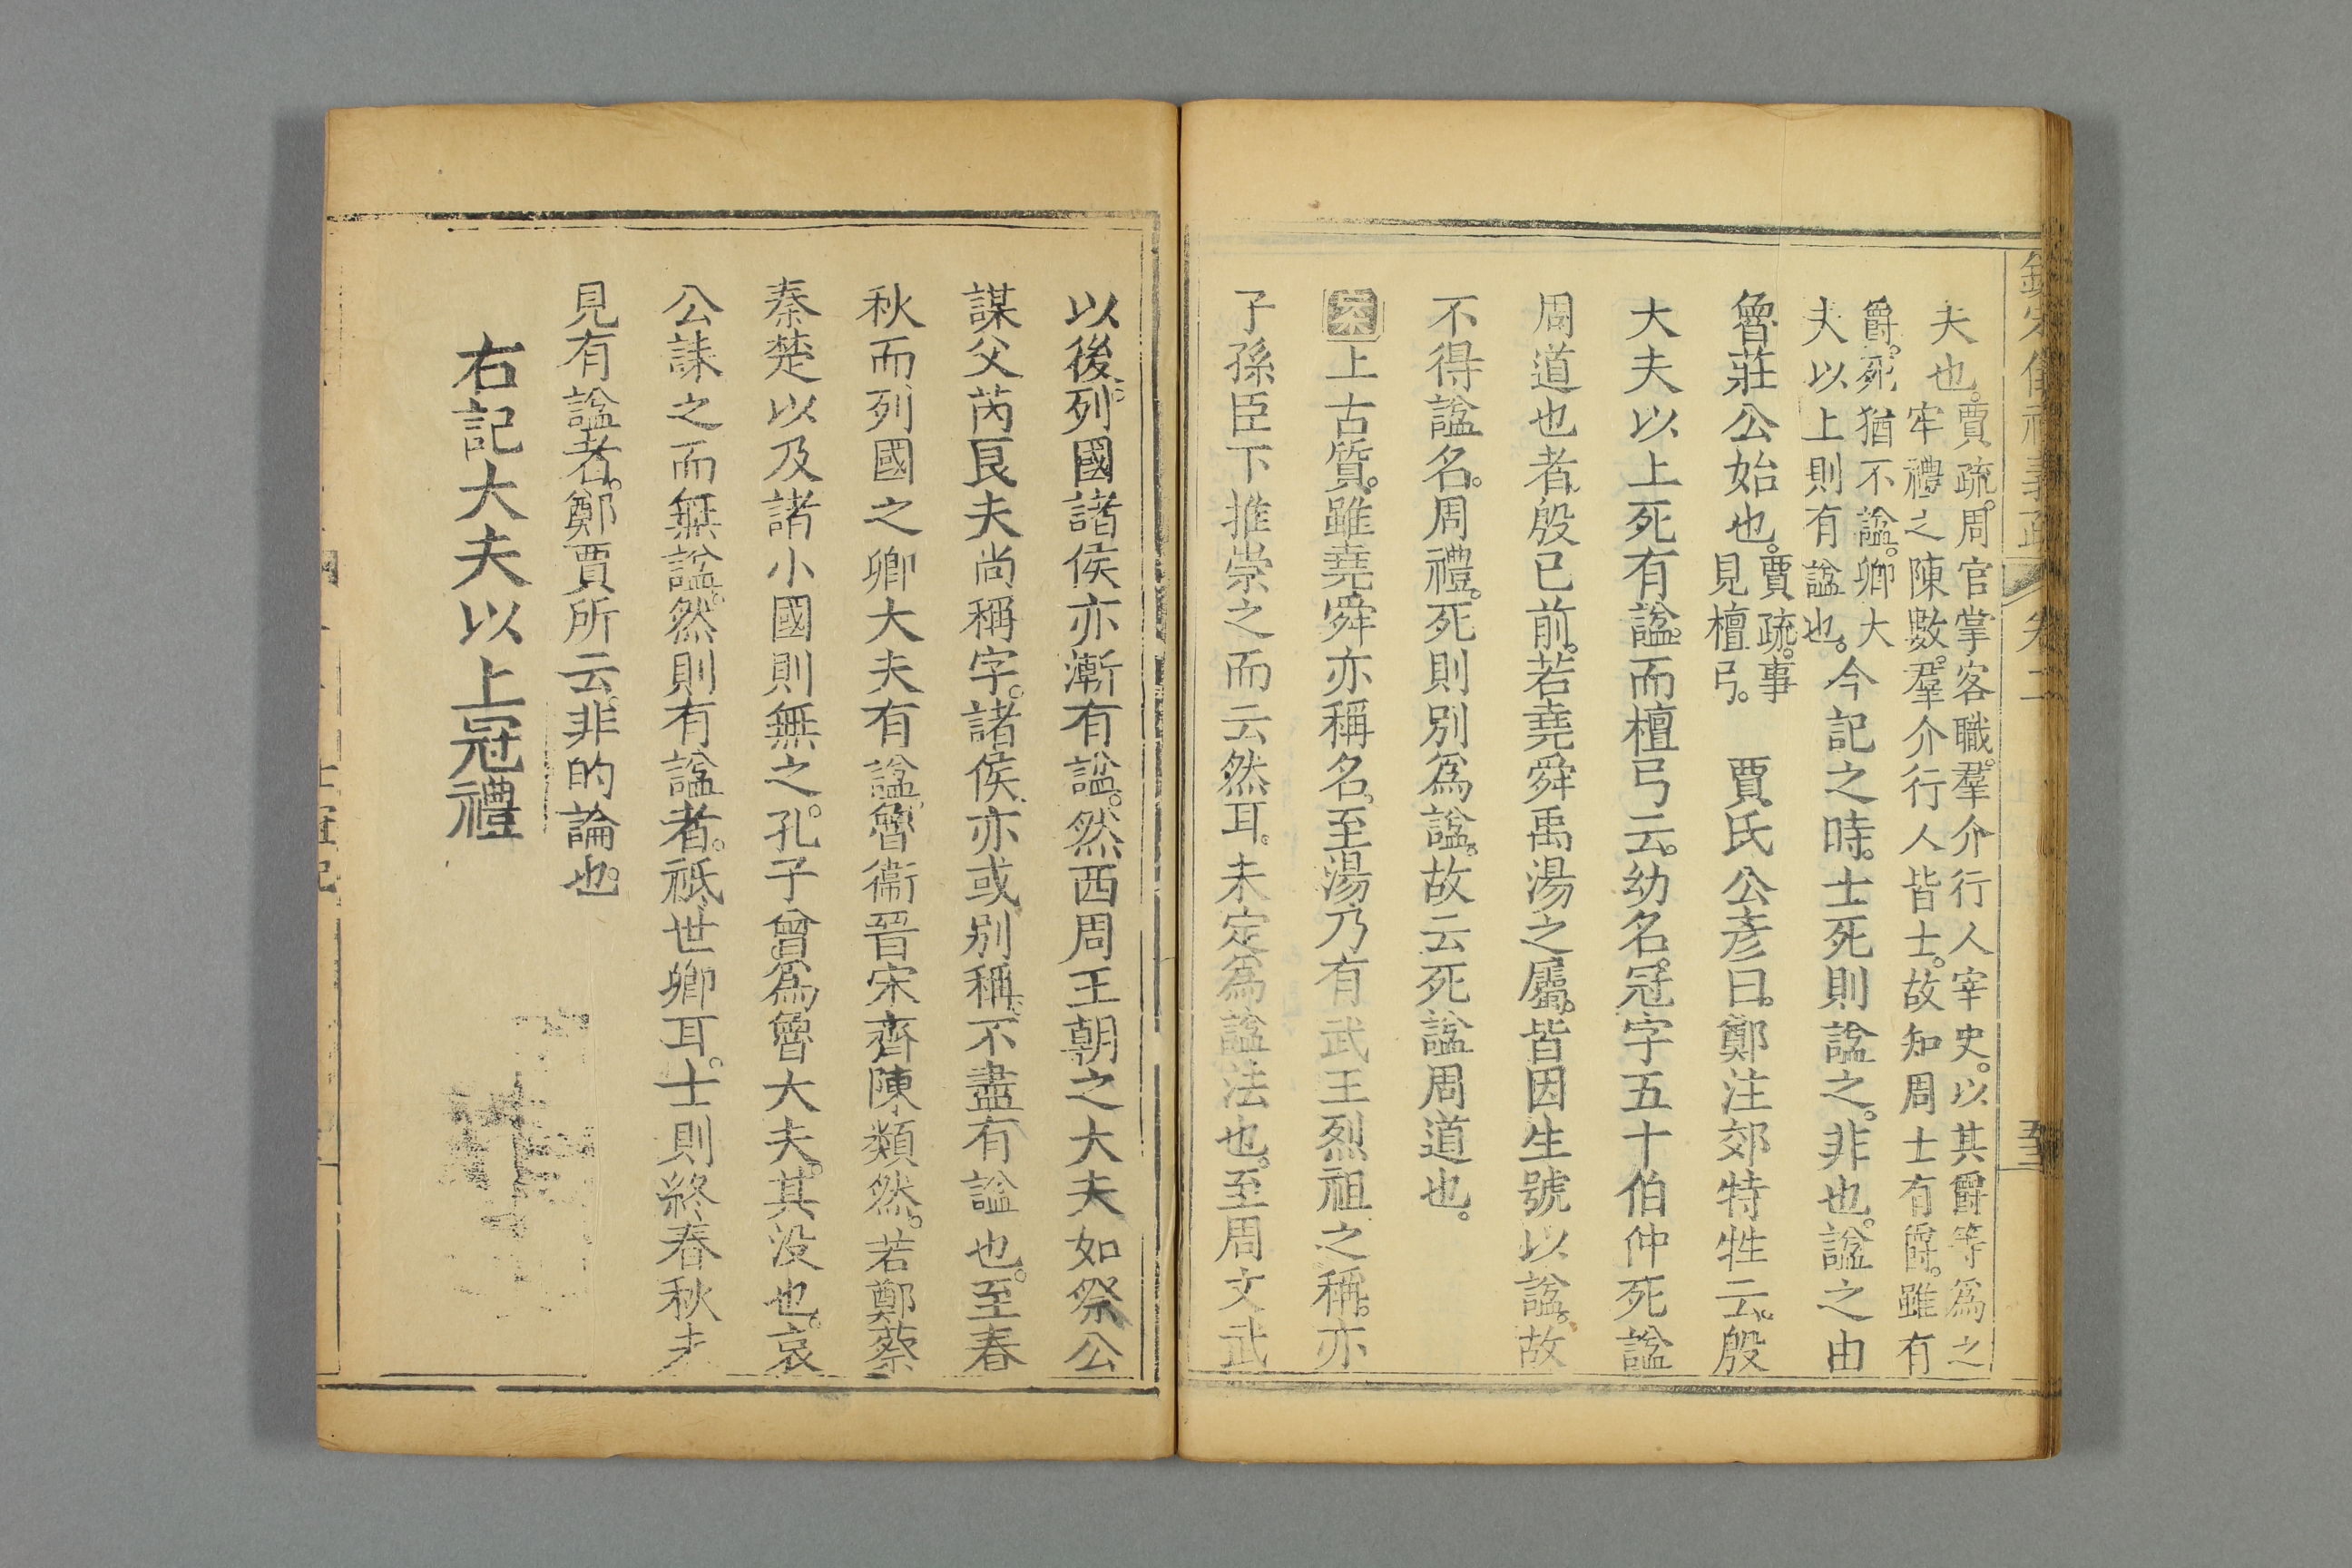 夫也。賈疏。周官掌客職。羣介行人宰史。以其爵等爲之
牢禮之陳數。羣介行人皆士。故知周士有爵。雖有
爵。死猶不諡。卿大
夫以上則有諡也。今記之時。士死則諡之。非也。諡之由
魯莊公始也。賈疏。事
見檀弓。賈氏公彥曰。鄭注郊特牲云。殷
大夫以上死有諡。而檀弓云。幼名。冠字五十伯仲死諡
周道也者。殷已前。若堯舜禹湯之屬。皆因生號以諡。故
不得諡名。周禮。死則別爲諡。故云死諡周道也。
案上古質。雖堯舜亦稱名。至湯乃有武王烈祖之稱。亦
子孫臣下推崇之而云然耳。未定爲諡法也。至周文武
欽定儀禮義疏 卷二
以後。列國諸侯亦漸有諡。然西周王朝之大夫如祭公
謀父芮良夫尚稱字。諸侯亦或別稱。不盡有諡也。至春
秋而列國之卿大夫有諡。魯衞晉宋齊陳類然。若鄭蔡
秦楚以及諸小國則無之。孔子曾爲魯大夫。其没也。哀
公誄之而無諡。然則有諡者。祗世卿耳。士則終春秋未
見有諡者。鄭賈所云。非的論也。
右記大夫以上冠禮
士冠記